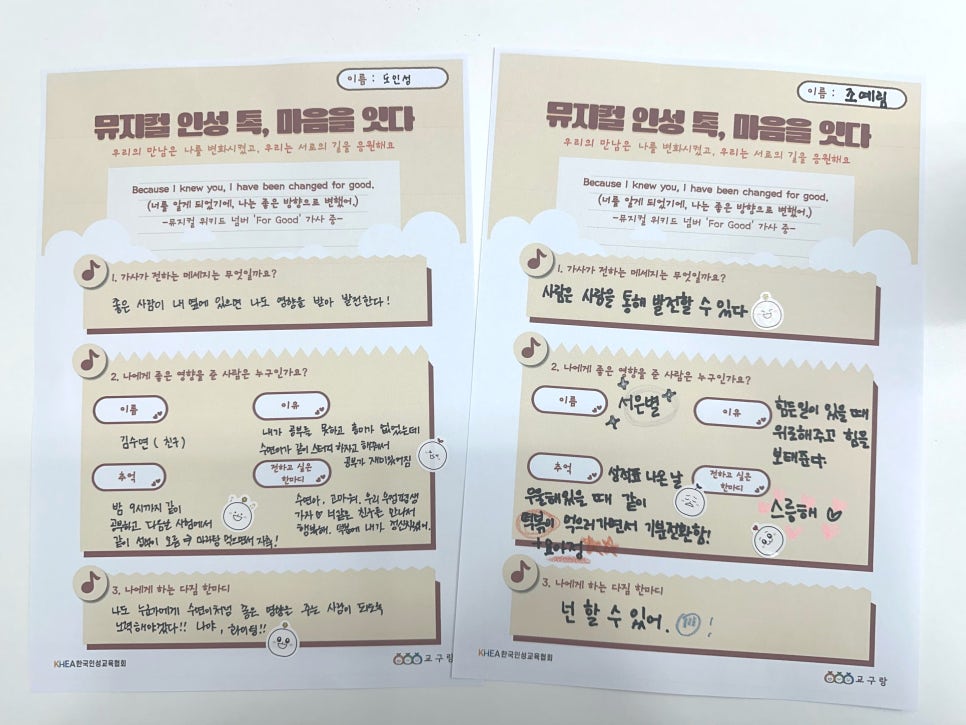 이름 : 도인성
뮤지컬 인성 톡, 마음을 잇다
우리의 만남은 나를 변화시켰고, 우리는 서로의 길을 응원해요
Because I knew you, I have been changed for good.
(너를 알게 되었기에, 나는 좋은 방향으로 변했어.)
-뮤지컬 위키드 넘버 'For Good' 가사 중-
1. 가사가 전하는 메세지는 무엇일까요?
좋은 사람이 내 옆에 있으면 나도 영향을 받아 발전한다!
2. 나에게 좋은 영향을 준 사람은 누구인가요?
이름
김수연 (친구)
이유
내가 공부를 못하고 흥미가 없었는데
수연이가 같이 스터디 하자고 해줘서
공부가 재미있어짐
추억
밤 9시까지 같이
공부하고 다음날 시험에서
같이 성적이 오름 → 마라탕 먹으면서 자축!
전하고 싶은
한마디
수연아, 고마워, 우리 우정 평생
가자 ♡ 너같은 친구를 만나서
행복해. 덕분에 내가 정신차렸어.
3. 나에게 하는 다짐 한마디
나도 누군가에게 수연이처럼 좋은 영향을 주는 사람이 되도록
노력해야겠다!! 나야, 화이팅!!
KHEA한국인성교육협회
교구랑
이름 : 조예림
뮤지컬 인성 톡, 마음을 잇다
우리의 만남은 나를 변화시켰고, 우리는 서로의 길을 응원해요
Because I knew you, I have been changed for good.
(너를 알게 되었기에, 나는 좋은 방향으로 변했어.)
-뮤지컬 위키드 넘버 'For Good' 가사 중-
1. 가사가 전하는 메세지는 무엇일까요?
사람은 사람을 통해 발전할 수 있다
2. 나에게 좋은 영향을 준 사람은 누구인가요?
이름
서은별
이유
힘든일이 있을 때마
위로해주고 힘을
보태준다.
추억
성적표 나온 날
우울해있을 때 같이
떡볶이 먹으러가면서 기분전환함!
+요아정
전하고 싶은
한마디
스릉해 ♡
3. 나에게 하는 다짐 한마디
넌 할 수 있어.
KHEA한국인성교육협회
교구랑